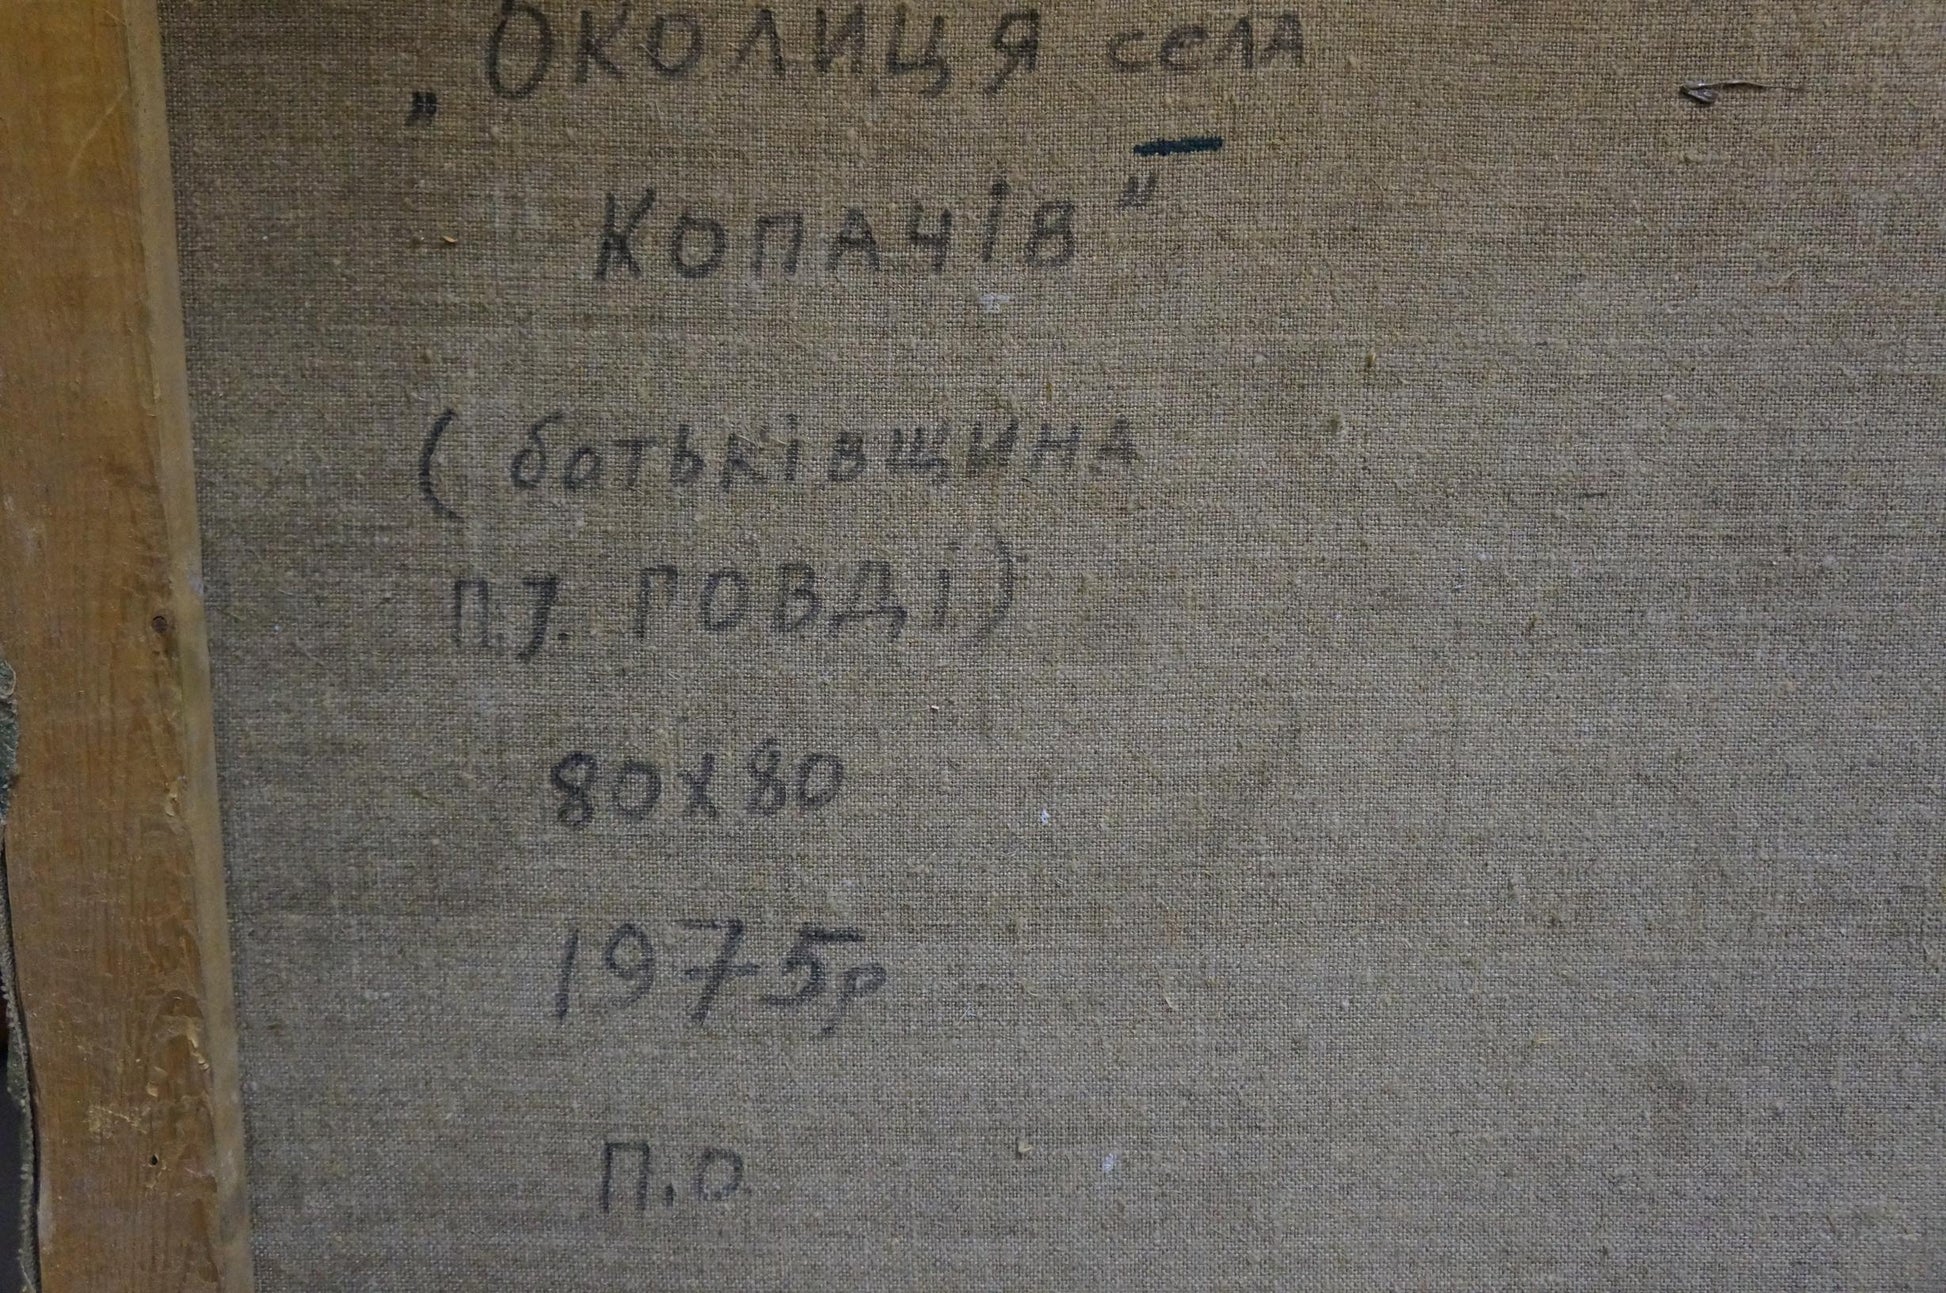 „Околиця села
Копачів"
(батьківщина
П.І. Говді)
80х80
1975р
п.о